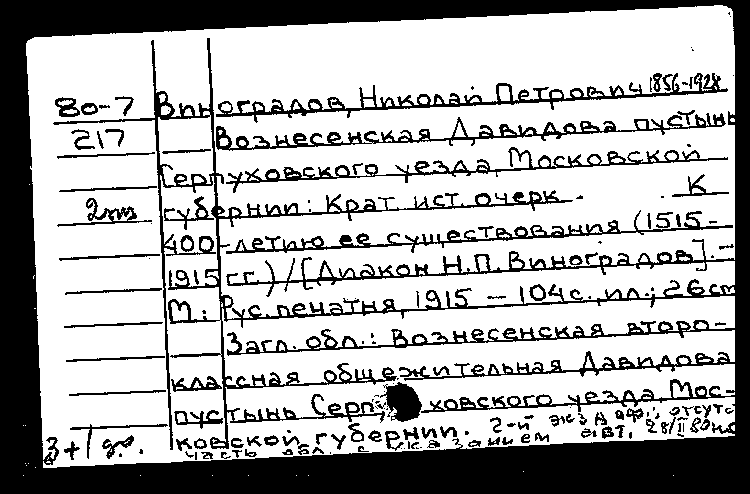 80-7 Виноградов, Николай Петрович 1856-1928
217 Вознесенская Давидова пустынь
Серпуховского уезда, Московской
2 экз губернии: Крат. ист. очерк. К
400-летию ее существования (1515-
1915 гг.) / [Диакон Н.П. Виноградов]. -
М.: Рус. печатня, 1915 — 104 с., ил.; 26 см
Загл. обл.: Вознесенская второ-
классная общежительная Давидова
пустынь Серпуховского уезда, Мос-
ковской губернии. 2-й экз
3+1 часть обл. с указанием авт. 28/II 80